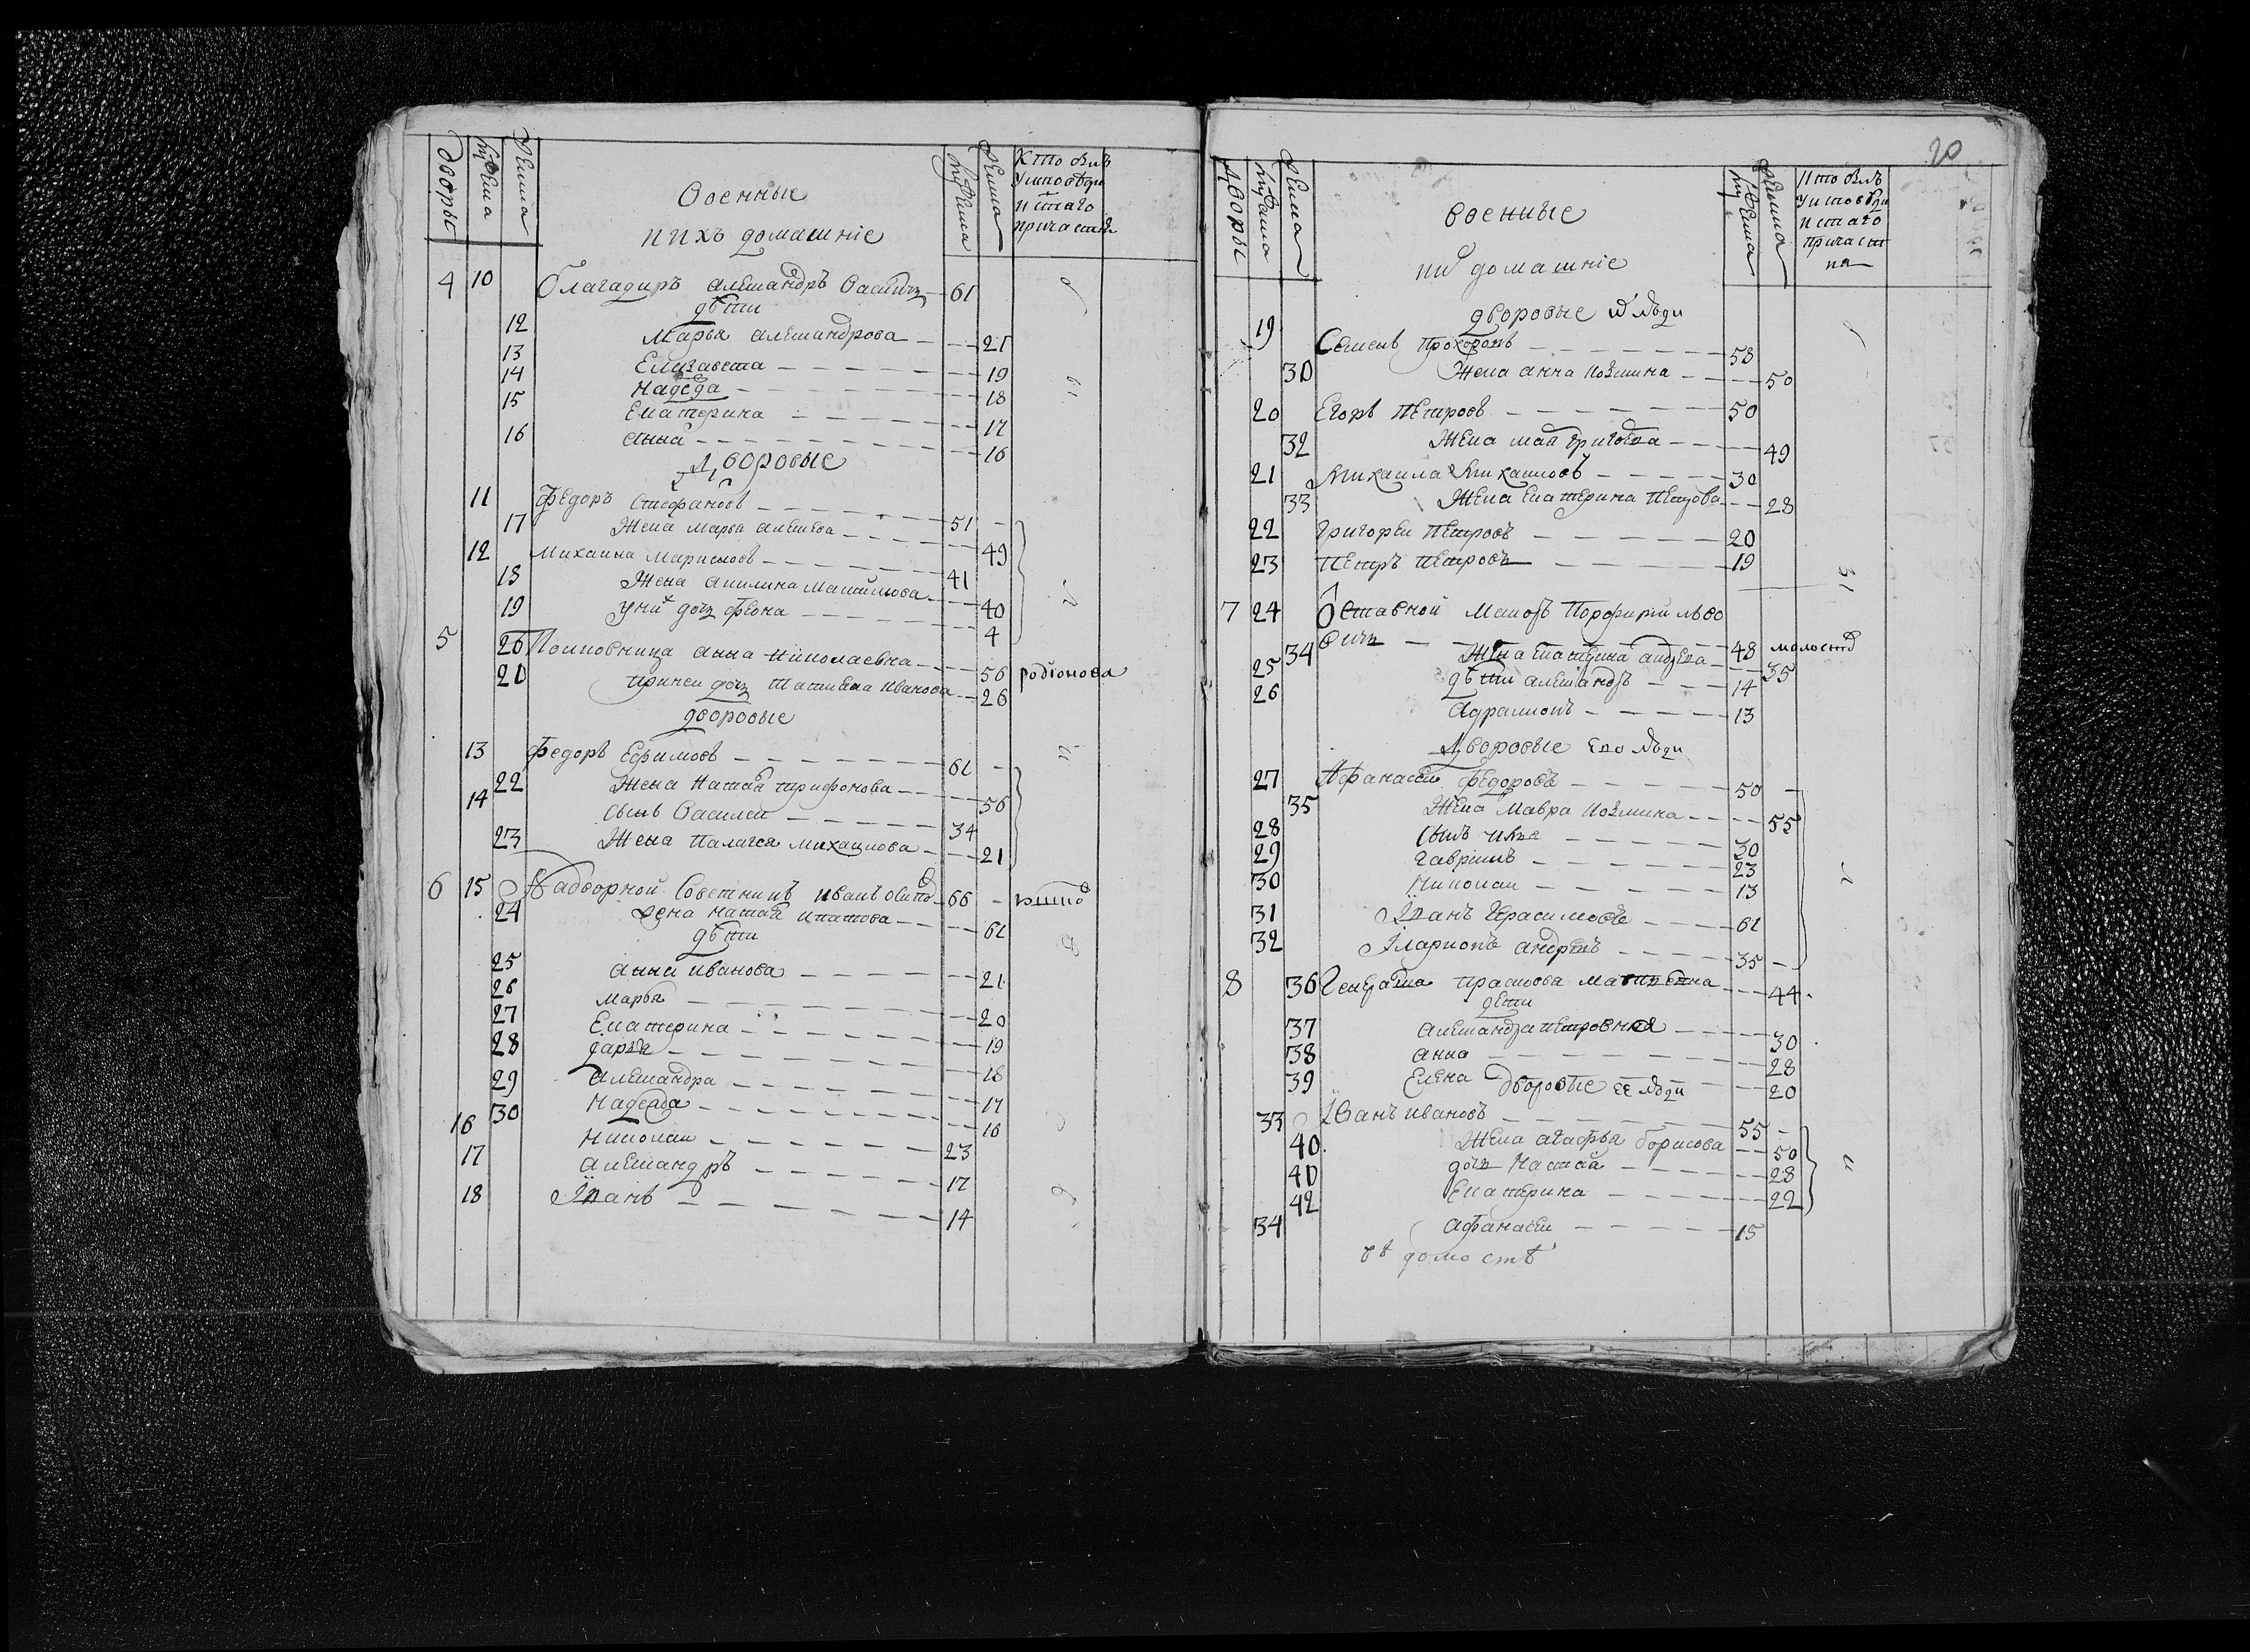 дворы
мужеска
женска
Военные
ихъ домашніе
мужеска
женска
Кто былъ
у исповеди
и стаго
причастія
4 10 Благадиръ алеѯандръ Васил 61
дѣти
12 Марья алеѯандрова 21
13 Елизавета 19
14 Надеда 18
15 Екатерина 17
16 Анна 16
Дворовые
11 Федоръ Стефановъ 51
17 Жена Марья алеѯева 49
12 Михаила Марковъ 41
18 Жена Акилина Михайлова 40
19 у ни дочь Фекла 4
5 20 Полковница Анна Николаевна 56 родіонова
21 При ней дочь Татиана Иванова 26
дворовые
13 Федоръ Ефимовъ 61
22 Жена Натал Трифонова 56
14 Сынъ Василей 34
23 Жена Палагея Михаилова 21
6 15 Надворной Советникъ Иванъ 66
24 жена Натал Ипатова 61
дѣти
25 Анна Иванова 21
26 Марья 20
27 Екатерина 19
28 Дарья 18
29 Алеѯандра 17
30 Надежда 16
16 Николаи 23
17 Алеѯандръ 17
18 Іванъ 14
20
дворы
мужеска
женска
военные
и домашніе
мужеска
женска
Кто былъ
у исповѣди
и стаго
причаст
ия
дворовые их люди
19 Семенъ Прохоровъ 58
30 Жена Анна Козмина 50
20 Егоръ Петровъ 50
32 Жена Мар Григоева 49
21 Михаила Михаиловъ 30
33 Жена Екатерина Петрова 28
22 Григореи Петровъ 20
23 Петръ Петровъ 19
31
7 24 Отставной Маиоръ Порфирии Льво
вичь 48
34 Жена Екатерина андреева 35
25 дѣти алеѯандръ 14
26 Адрамионъ 13
Дворовые его люди
27 Афанасеи Федоровъ 50
35 Жена Мавра Козмина 55
28 Сынъ Илья 30
29 Гавріилъ 23
30 Николаи 13
31 Іванъ Герасимовъ 61
32 Іларионъ андреевъ 35
8 36 Генералша Прасковья Матвевна 44
дети
37 Алеѯандра петровна 30
38 Анна 28
39 Елена 20
дворовые ее люди
33 Іванъ Ивановъ 55
40 Жена Агафья Борисова 50
40 дочь Настая 28
42 Екатерина 22
34 Афанасеи 15